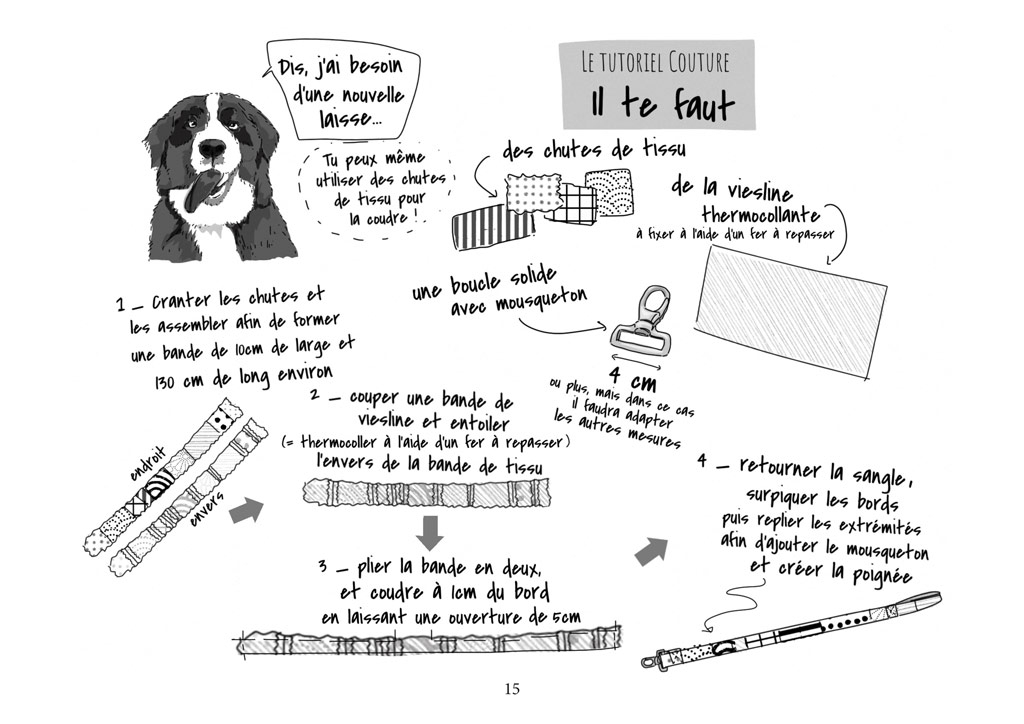 Dis, j'ai besoin
d'une nouvelle
laisse...
Tu peux même
utiliser des chutes
de tissu pour
la coudre !
LE TUTORIEL COUTURE
Il te faut
des chutes de tissu
de la viesline
thermocollante
à fixer à l'aide d'un fer à repasser
une boucle solide
avec mousqueton
4 cm
ou plus, mais dans ce cas
il faudra adapter
les autres mesures
1 _ Cranter les chutes et
les assembler afin de former
une bande de 10cm de large et
130 cm de long environ
endroit
envers
2 _ couper une bande de
viesline et entoiler
(= thermocoller à l'aide d'un fer à repasser)
l'envers de la bande de tissu
3 _ plier la bande en deux,
et coudre à 1cm du bord
en laissant une ouverture de 5cm
4 _ retourner la sangle,
surpiquer les bords
puis replier les extrémités
afin d'ajouter le mousqueton
et créer la poignée
15